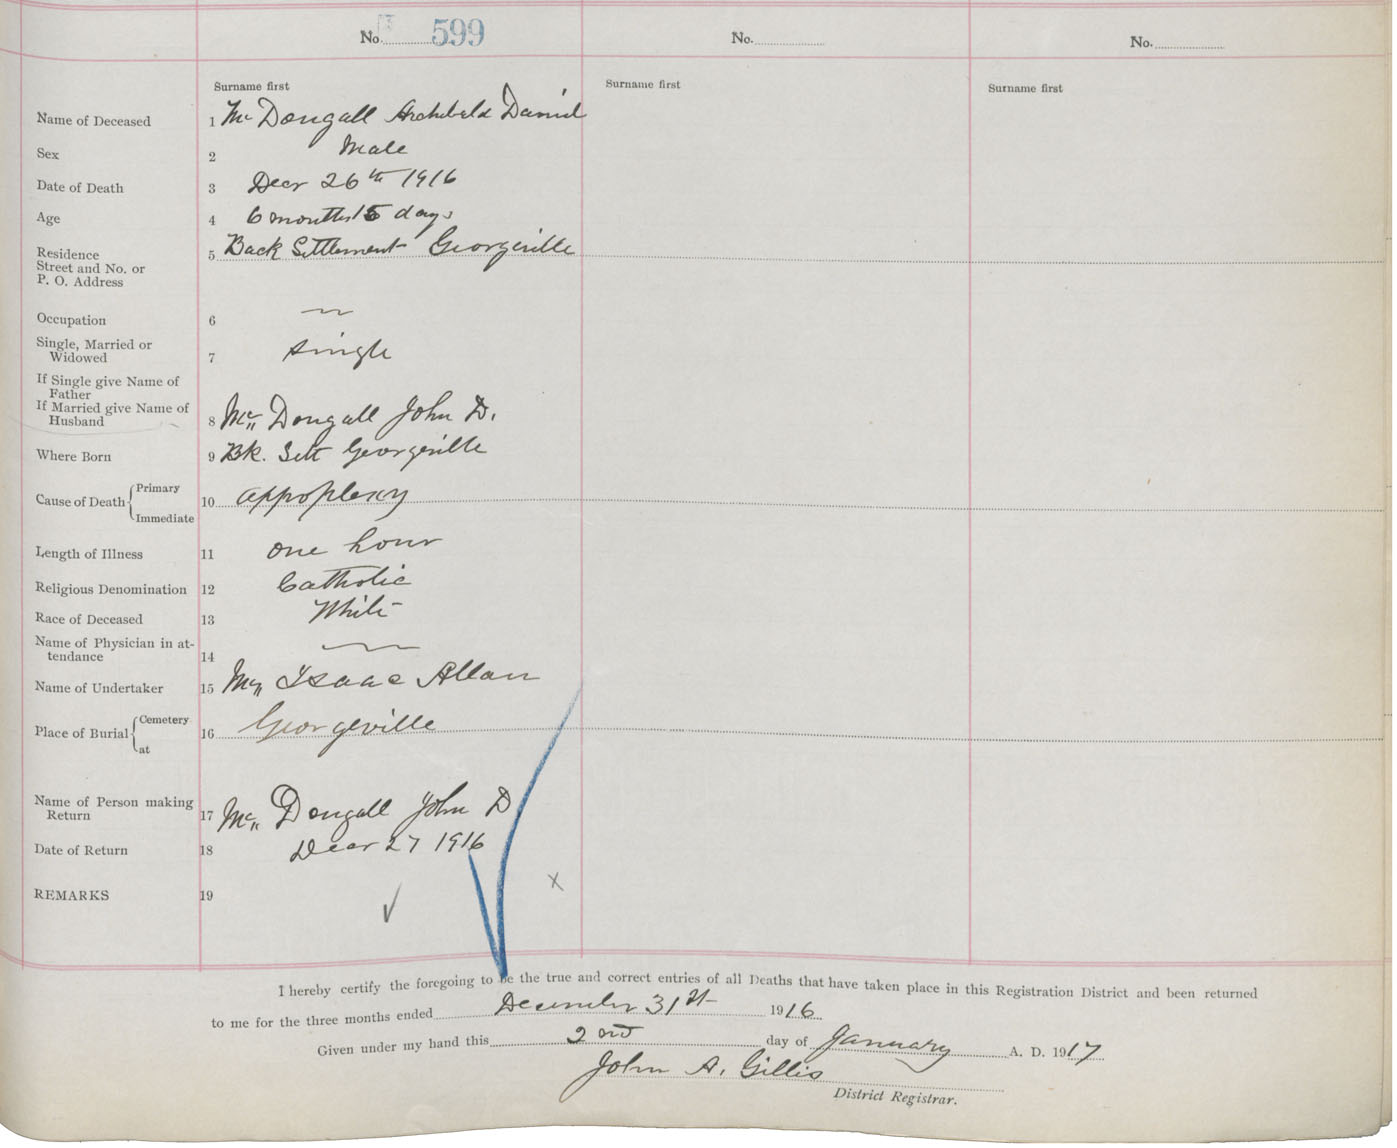 No. 599
No.
No.
Surname first
Surname first
Surname first
Name of Deceased 1 Mc Dougall Archibald Daniel
Sex 2 Male
Date of Death 3 Decr 26th 1916
Age 4 6 months 15 days
Residence
Street and No. or
P. O. Address
5 Back Settlement Georgeville
Occupation 6 ~
Single, Married or
Widowed
7 Single
If Single give Name of
Father
If Married give Name of
Husband
8 Mc Dougall John D.
Where Born 9 Bk. Sett Georgeville
Cause of Death { Primary
Immediate
10 appoplexy
Length of Illness 11 one hour
Religious Denomination 12 Catholic
Race of Deceased 13 White
Name of Physician in at-
tendance
14 ~
Name of Undertaker 15 Isaac Allan
Place of Burial { Cemetery
at
16 Georgeville
Name of Person making
Return
17 Mc Dougall John D
Date of Return 18 Decr 27 1916
REMARKS 19
I hereby certify the foregoing to be the true and correct entries of all Deaths that have taken place in this Registration District and been returned
to me for the three months ended December 31st 1916
Given under my hand this 2nd day of January A. D. 1917
John A. Gillis
District Registrar.